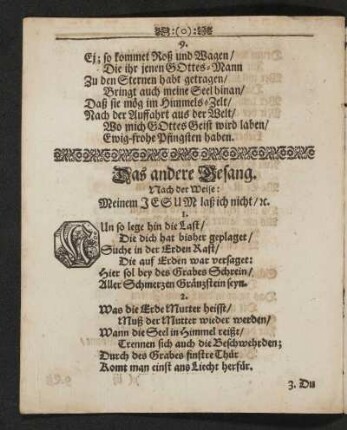 :(o):
9.
Ej; so kommet Roß und Wagen/
Die ihr jenen GOttes-Mann
Zu den Sternen habt getragen/
Bringt auch meine Seel hinan/
Daß sie mög im Himmels-Zelt/
Nach der Auffahrt aus der Welt/
Wo mich GOttes Geist wird laben/
Ewig-frohe Pfingsten haben.
Das andere Gesang.
Nach der Weise:
Meinem JESUM laß ich nicht/ ꝛc.
1.
NUn so lege hin die Last/
Die dich hat bisher geplaget/
Suche in der Erden Rast/
Die auf Erden war versaget:
Hier sol bey des Grabes Schrein/
Aller Schmertzen Gränzstein seyn.
2.
Was die Erde Mutter heisst/
Muß der Mutter wieder werden/
Wann die Seel in Himmel reißt/
Trennen sich auch die Beschwehrden;
Durch des Grabes finstre Thür
Komt man einst ans Liecht herfür.
3. Du